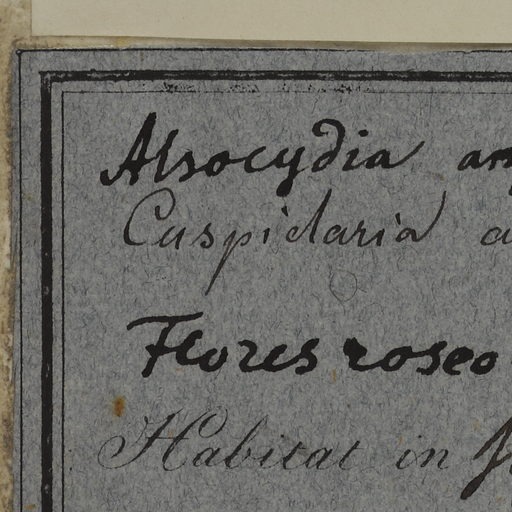 Alsocydia
Cuspidaria a
Flores roseo
Habitat in